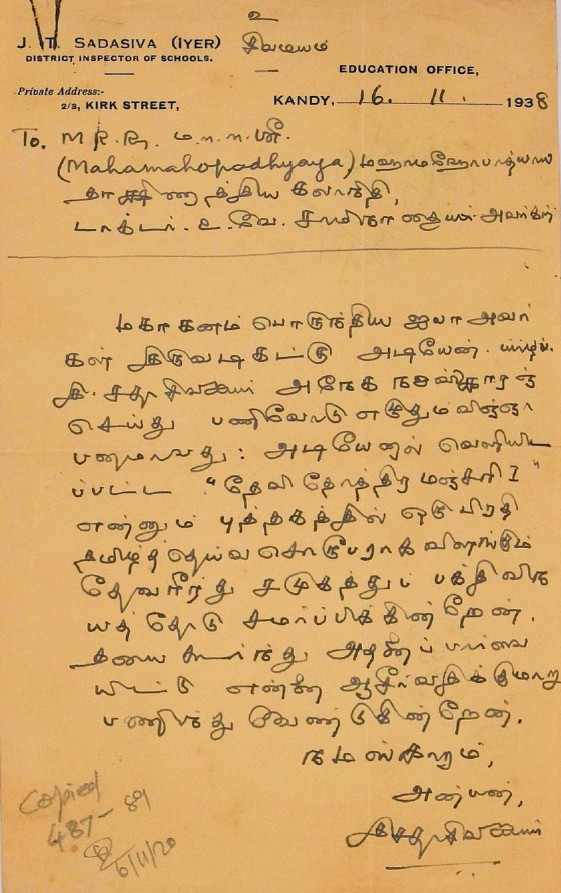 உ
J. T. SADASIVA (IYER) சிவமயம்
DISTRICT INSPECTOR OF SCHOOLS.
EDUCATION OFFICE,
Private Address:-
2/3, KIRK STREET,
KANDY, 16. 11. 1938
To. M R. Ry. ம-ள-ள-ஸ்ரீ.
(Mahamahopadhyaya) மஹாமஹோபாத்யாய
தாக்ஷிணாத்திய கலாநிதி,
டாக்டர். உ. வே. சாமிநாதையர் அவர்கள்
மகா கனம் பொருந்திய ஐயா அவர்
கள் திருவடிகட்கு அடியேன்
தி. சதாசிவஐயர் அநேக நமஸ்காரஞ்
செய்து பணிவோடு எழுதும் விஞ்ஞா
பனமாவது: அடியேனால் வெளியிட
ப்பட்ட "தேவி தோத்திர மஞ்சரி I"
என்னும் புத்தகத்தில் ஒரு பிரதி
தமிழ்த் தெய்வ சொரூபராக விளங்கும்
தேவரீரது சமுகத்துப் பக்திவிந
யத்தோடு சமர்ப்பிக்கின்றேன்.
தயை கூர்ந்து அதனைப் பார்வை
யிட்டு என்னை ஆசீர்வதிக்குமாறு
பணிந்து வேண்டுகின்றேன்.
நமஸ்காரம்,
அன்பன்,
தி. சதாசிவஐயர்
Copied
487-89
6/11/20